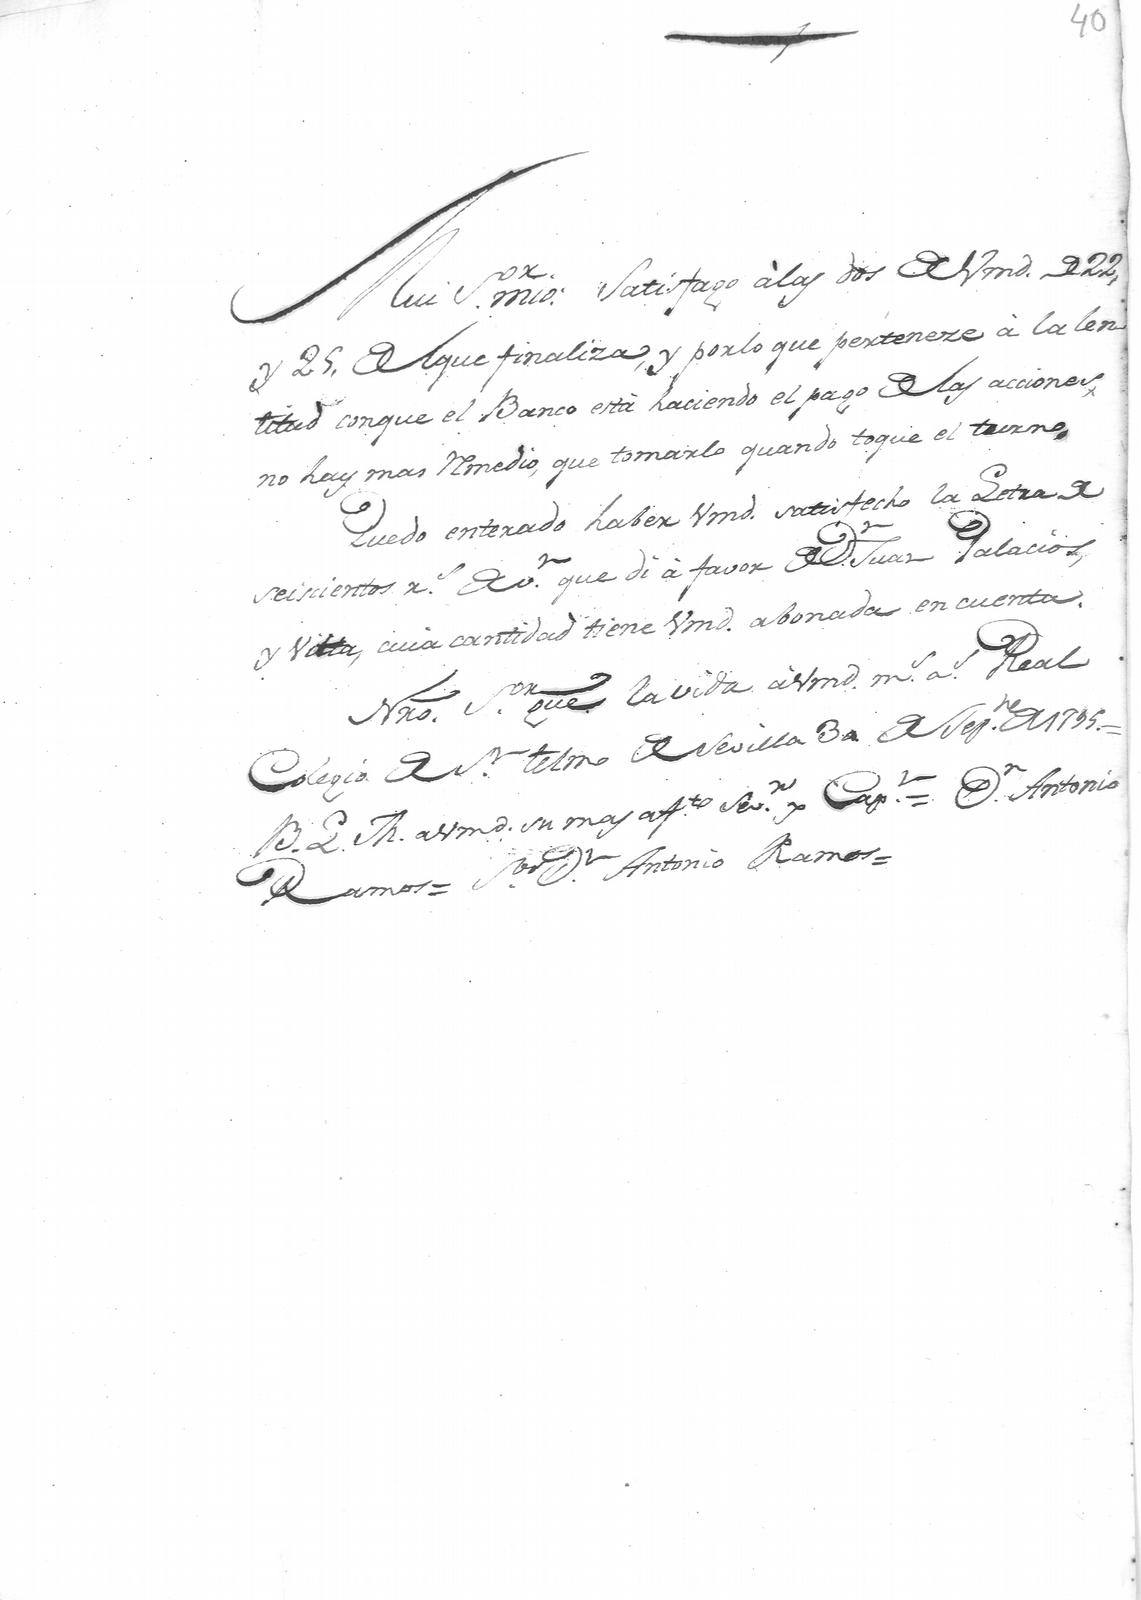 40
Mui S.or mio: Satisfago à las dos de Vmd. de 22,
y 25, del que finaliza, y por lo que perteneze à la len
titud conque el Banco està haciendo el pago de las acciones,
no hay mas Remedio, que tomarlo quando toque el turno.
Quedo enterado haber Vmd. satisfecho la Letra de
seiscientos r.s de v.n que di à favor de D.n Juan Palacios,
y Villa, cuia cantidad tiene Vmd. abonada en cuenta.
Nro. S.or gue. la vida à Vmd. m.s a.s Real
Colegio de S.n Telmo de Sevilla 30 de Sep.re de 1795.=
B. L. M. a Vmd. su mas aff.to Ser.r y Cap.n = D.n Antonio
Ramos= S.or D.n Antonio Ramos=